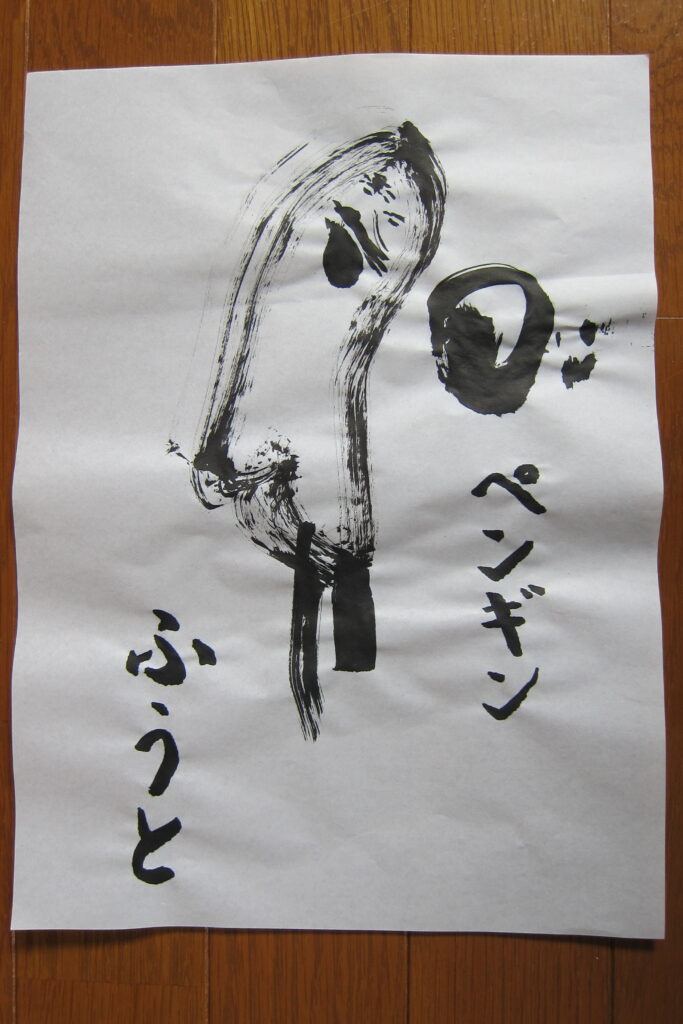 ペンギン
ふうと